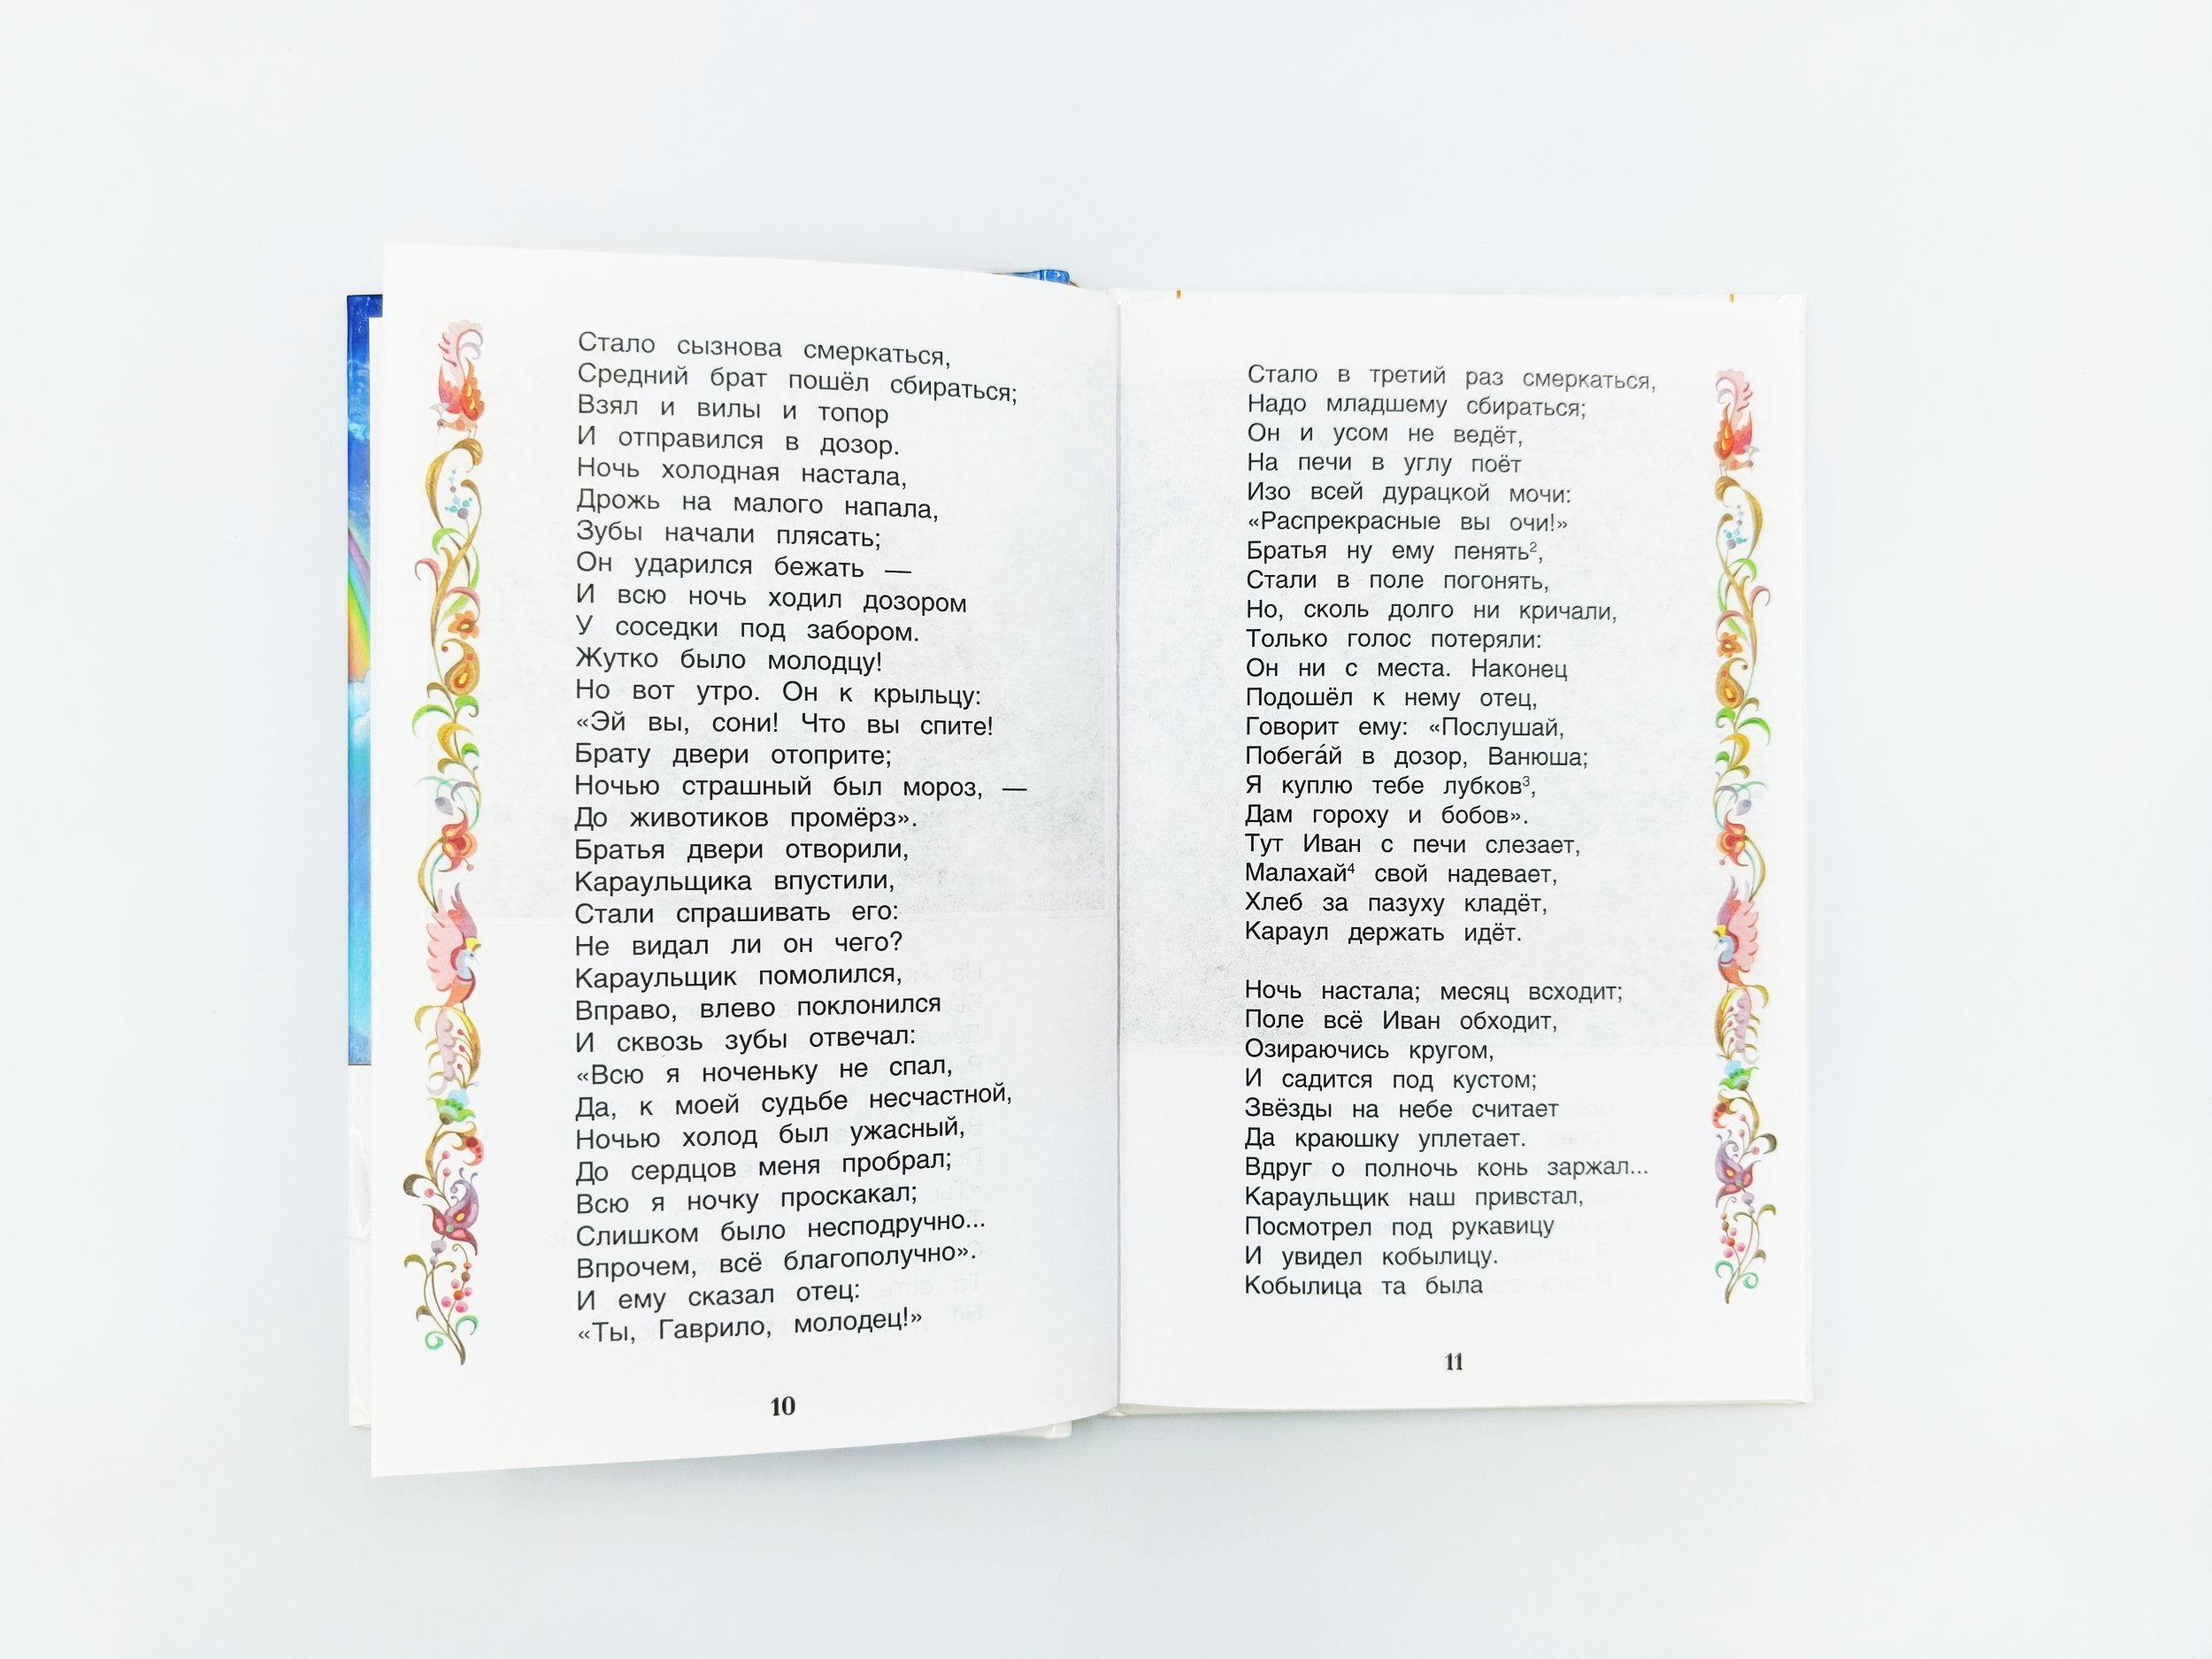 Стало сызнова смеркаться,
Средний брат пошёл сбираться;
Взял и вилы и топор
И отправился в дозор.
Ночь холодная настала,
Дрожь на малого напала,
Зубы начали плясать;
Он ударился бежать —
И всю ночь ходил дозором
У соседки под забором.
Жутко было молодцу!
Но вот утро. Он к крыльцу:
«Эй вы, сони! Что вы спите!
Брату двери отоприте;
Ночью страшный был мороз, —
До животиков промёрз».
Братья двери отворили,
Караульщика впустили,
Стали спрашивать его:
Не видал ли он чего?
Караульщик помолился,
Вправо, влево поклонился
И сквозь зубы отвечал:
«Всю я ноченьку не спал,
Да, к моей судьбе несчастной,
Ночью холод был ужасный,
До сердцов меня пробрал;
Всю я ночку проскакал;
Слишком было несподручно...
Впрочем, всё благополучно».
И ему сказал отец:
«Ты, Гаврило, молодец!»
10
Стало в третий раз смеркаться,
Надо младшему сбираться;
Он и усом не ведёт,
На печи в углу поёт
Изо всей дурацкой мочи:
«Распрекрасные вы очи!»
Братья ну ему пенять²,
Стали в поле погонять,
Но, сколь долго ни кричали,
Только голос потеряли:
Он ни с места. Наконец
Подошёл к нему отец,
Говорит ему: «Послушай,
Побега́й в дозор, Ванюша;
Я куплю тебе лубков³,
Дам гороху и бобов».
Тут Иван с печи слезает,
Малахай⁴ свой надевает,
Хлеб за пазуху кладёт,
Караул держать идёт.
Ночь настала; месяц всходит;
Поле всё Иван обходит,
Озираючись кругом,
И садится под кустом;
Звёзды на небе считает
Да краюшку уплетает.
Вдруг о полночь конь заржал...
Караульщик наш привстал,
Посмотрел под рукавицу
И увидел кобылицу.
Кобылица та была
11